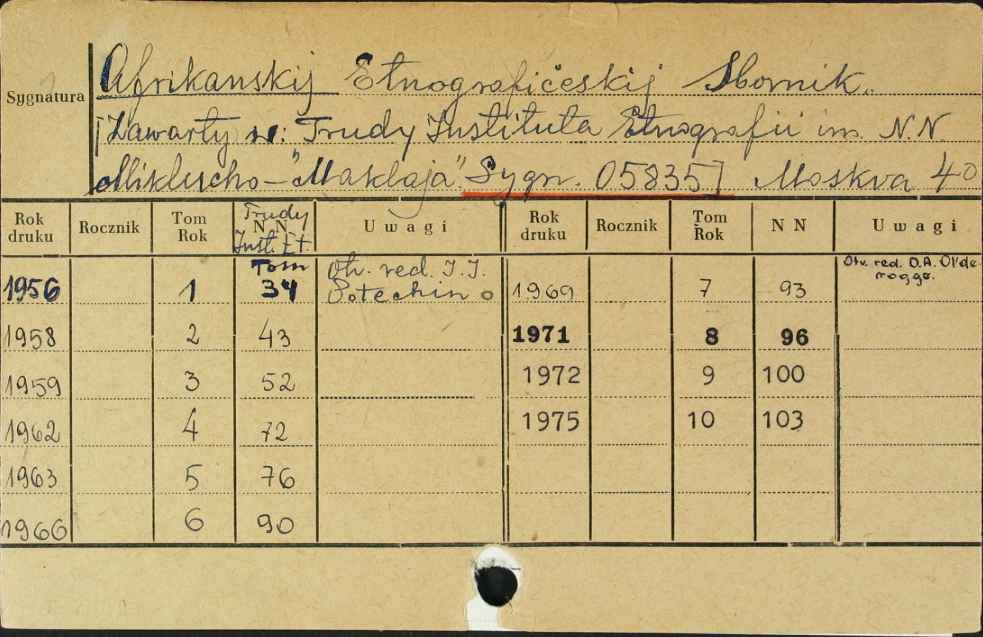 Afrikanskij Etnografičeskij Sbornik.
Sygnatura
[Zawarty w: Trudy Instituta Etnografii im. N.N
Miklucho-"Maklaja". Sygn. 05835] Moskva 40
Rok druku Rocznik Tom Rok Trudy N N Inst. Et. Uwagi Rok druku Rocznik Tom Rok N N Uwagi
1956 1 Tom 34 Otv. red. I. I. Potechin 1969 7 93 Otv. red. D.A. Ol'derogge.
1958 2 43 1971 8 96
1959 3 52 1972 9 100
1962 4 72 1975 10 103
1963 5 76
1966 6 90